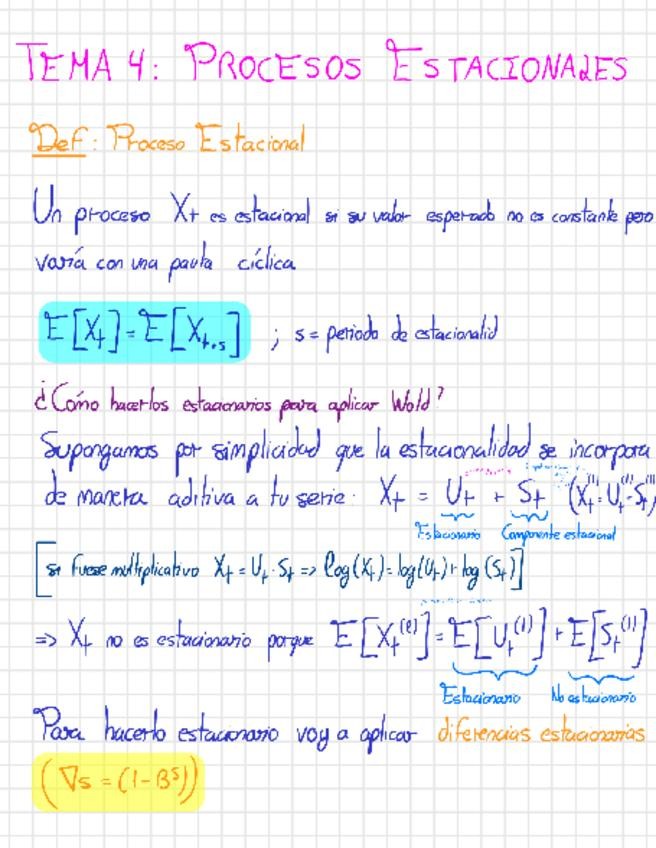 TEMA 4: PROCESOS ESTACIONALES
Def: Proceso Estacional
Un proceso Xt es estacional si su valor esperado no es constante pero
varía con una pauta cíclica
E[Xt] = E[Xt+s] ; s = periodo de estacionalid
¿Cómo hacerlos estacionarios para aplicar Wold?
Supongamos por simplicidad que la estacionalidad se incorpora
de manera aditiva a tu serie: Xt = Ut + St
Estacionario Componente estacional
[si fuese multiplicativo Xt = Ut · St => log(Xt) = log(Ut) + log(St)]
=> Xt no es estacionario porque E[Xt⁽ˡ⁾] = E[Ut⁽ˡ⁾] + E[St⁽ˡ⁾]
Estacionario No estacionario
Para hacerlo estacionario voy a aplicar diferencias estacionarias
(∇s = (1-Bˢ))